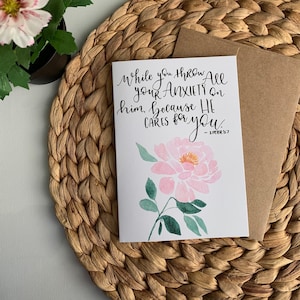 While you throw All
your ANXIETY on
him, because HE
CARES for you.